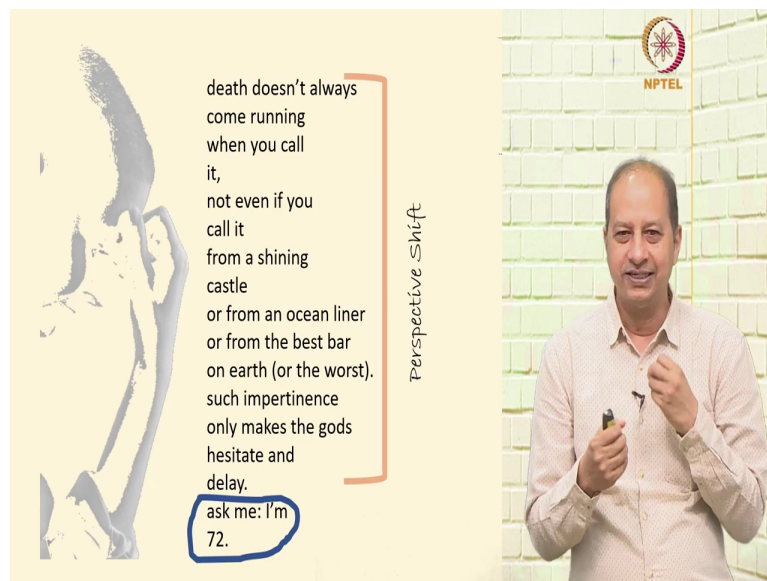 death doesn't always
come running
when you call
it,
not even if you
call it
from a shining
castle
or from an ocean liner
or from the best bar
on earth (or the worst).
such impertinence
only makes the gods
hesitate and
delay.
ask me: I'm
72.
Perspective Shift
NPTEL